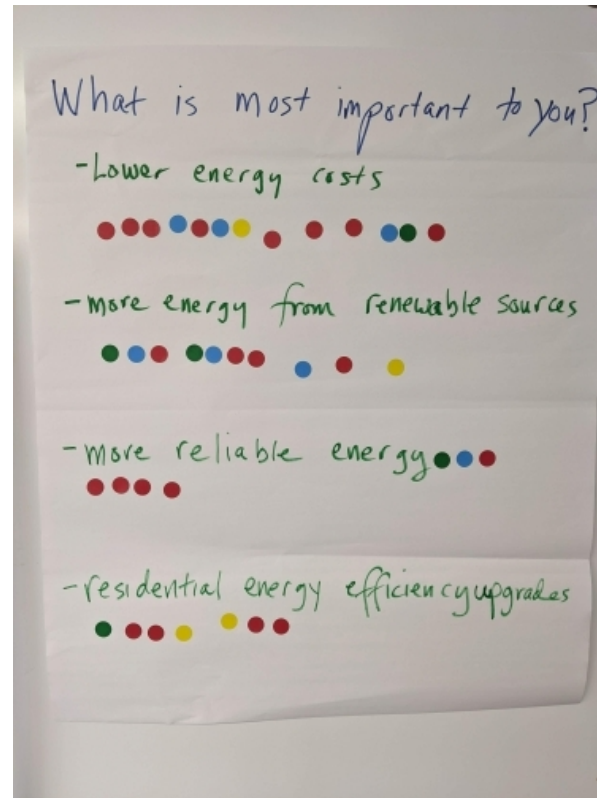 What is most important to you?
-Lower energy costs
-more energy from renewable sources
-more reliable energy
-residential energy efficiency upgrades